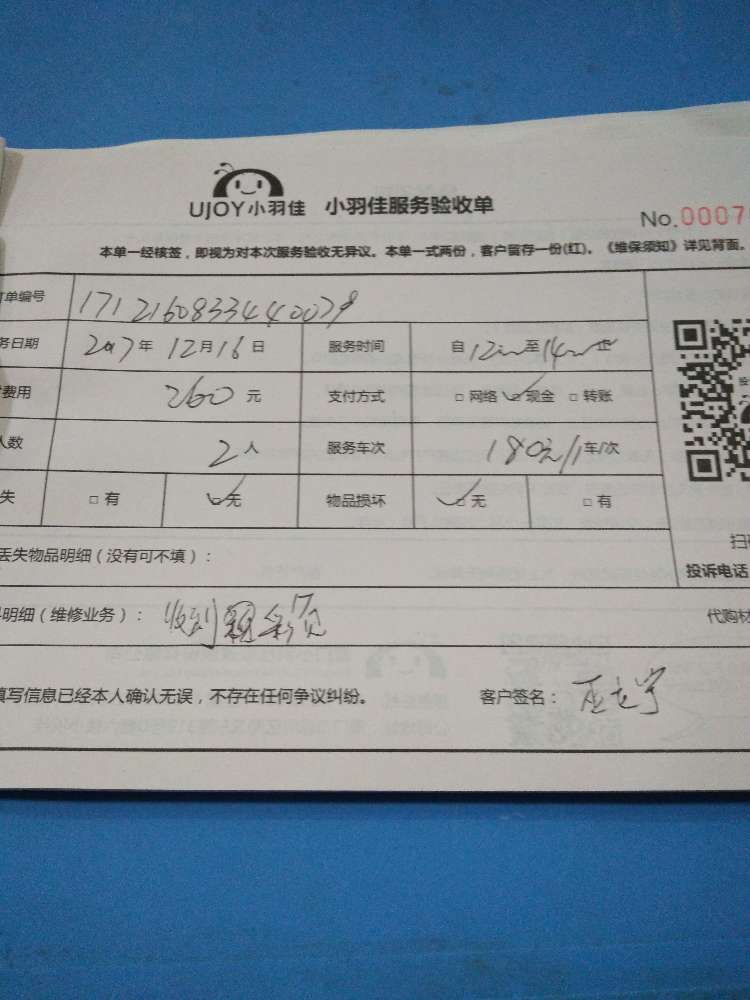 UJOY小羽佳 小羽佳服务验收单
No.0007
本单一经核签，即视为对本次服务验收无异议。本单一式两份，客户留存一份(红)。《维保须知》详见背面。
单编号 171216083344007
务日期 2017年12月16日 服务时间 自12 至14 止
费用 260元 支付方式 □网络 ☑现金 □转账
人数 2人 服务车次 180元/1车/次
失 □有 ☑无 物品损坏 ☑无 □有
丢失物品明细（没有可不填）：
扫
投诉电话
明细（维修业务）： 收到
代购材
填写信息已经本人确认无误，不存在任何争议纠纷。 客户签名：